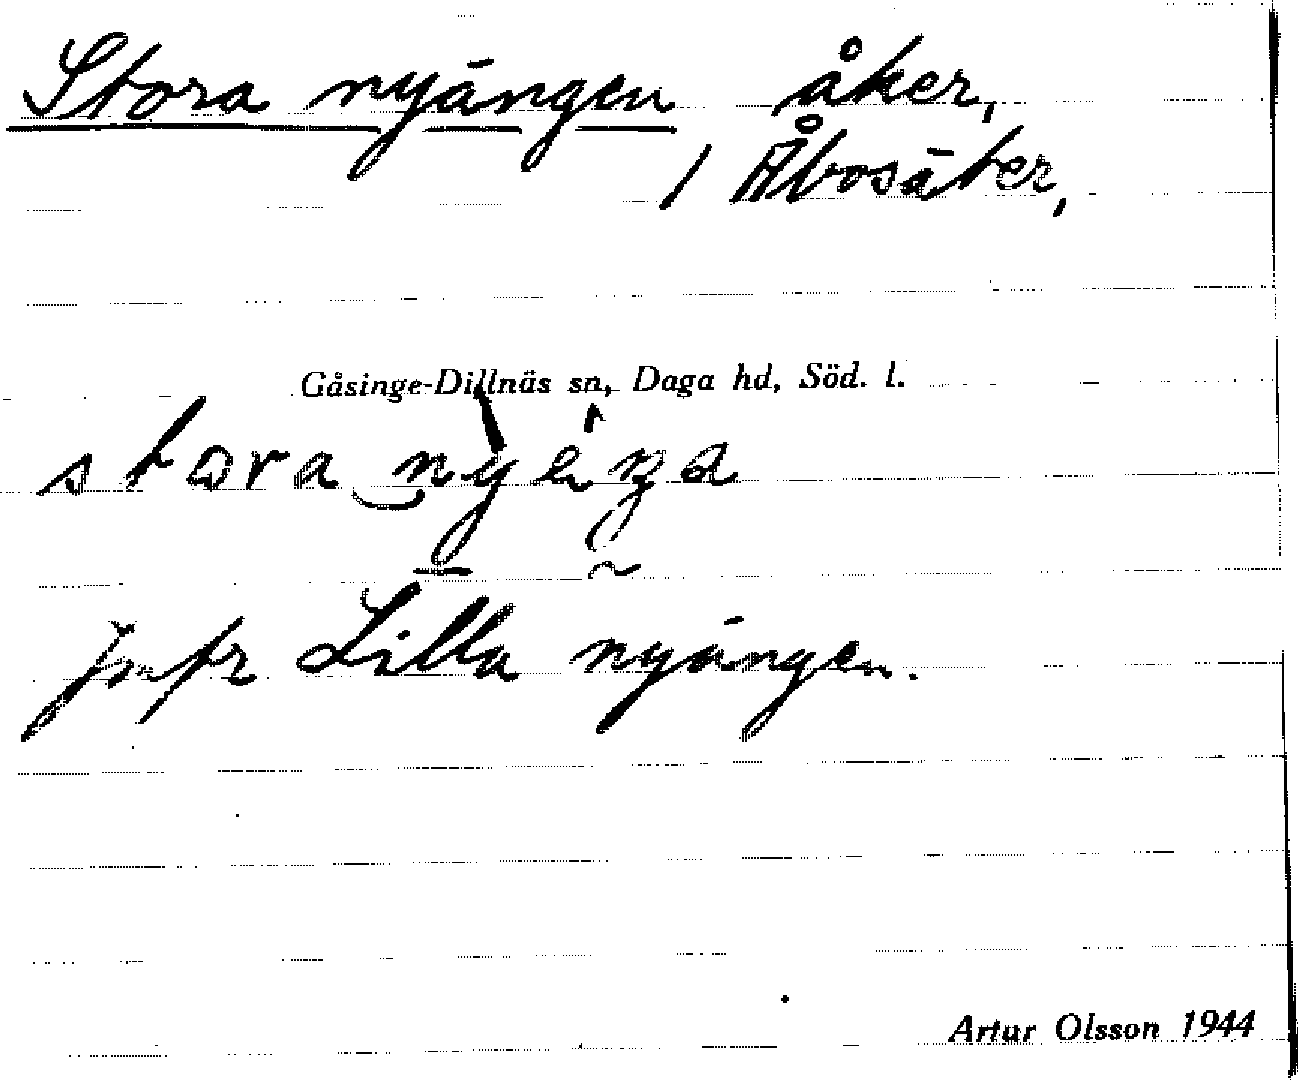 Stora nyängen åker,
/ Åbosäter,
Gåsinge-Dillnäs sn, Daga hd, Söd. l.
stora
Jmfr Lilla nyängen.
Artur Olsson 1944